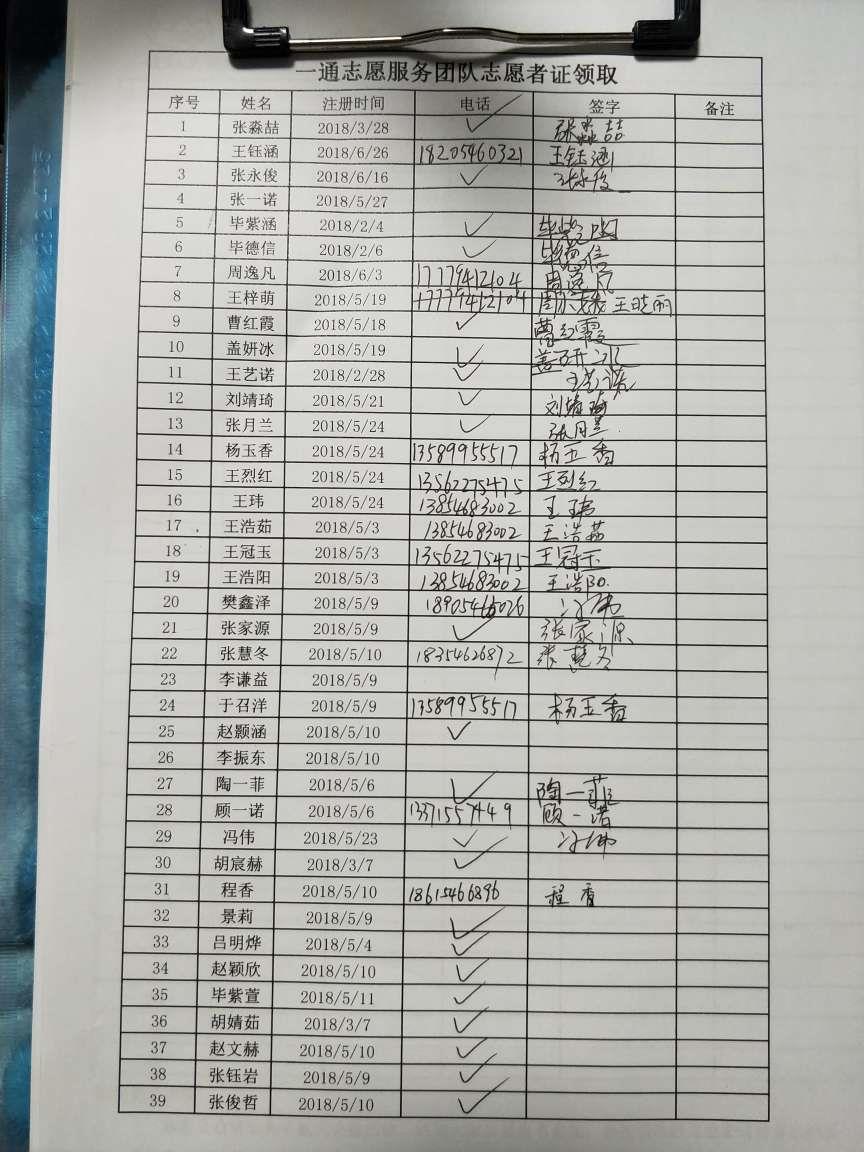 一通志愿服务团队志愿者证领取
序号 姓名 注册时间 电话 签字 备注
1 张淼喆 2018/3/28 ✓ 张淼喆
2 王钰涵 2018/6/26 18205460321 王钰涵
3 张永俊 2018/6/16 ✓ 张永俊
4 张一诺 2018/5/27
5 毕紫涵 2018/2/4 ✓
6 毕德信 2018/2/6 ✓ 毕德信
7 周逸凡 2018/6/3 17779412104 周逸凡
8 王梓萌 2018/5/19 17779412104 王晓丽
9 曹红霞 2018/5/18 ✓ 曹红霞
10 盖妍冰 2018/5/19 ✓ 盖研冰
11 王艺诺 2018/2/28 ✓ 王艺诺
12 刘靖琦 2018/5/21 ✓ 刘靖琦
13 张月兰 2018/5/24 ✓ 张月兰
14 杨玉香 2018/5/24 13589955517 杨玉香
15 王烈红 2018/5/24 13562275475 王烈红
16 王玮 2018/5/24 13854683002 王玮
17 王浩茹 2018/5/3 13854683002 王浩茹
18 王冠玉 2018/5/3 13562275475 王冠玉
19 王浩阳 2018/5/3 13854683002 王浩阳
20 樊鑫泽 2018/5/9 18905465026 冯伟
21 张家源 2018/5/9 ✓ 张家源
22 张慧冬 2018/5/10 18354626872 张慧冬
23 李谦益 2018/5/9
24 于召洋 2018/5/9 13589955517 杨玉香
25 赵颢涵 2018/5/10 ✓
26 李振东 2018/5/10
27 陶一菲 2018/5/6 ✓ 陶一菲
28 顾一诺 2018/5/6 13371557449 顾一诺
29 冯伟 2018/5/23 ✓ 冯伟
30 胡宸赫 2018/3/7 ✓
31 程香 2018/5/10 18615466896 程香
32 景莉 2018/5/9 ✓
33 吕明烨 2018/5/4 ✓
34 赵颖欣 2018/5/10 ✓
35 毕紫萱 2018/5/11 ✓
36 胡婧茹 2018/3/7 ✓
37 赵文赫 2018/5/10 ✓
38 张钰岩 2018/5/9 ✓
39 张俊哲 2018/5/10 ✓